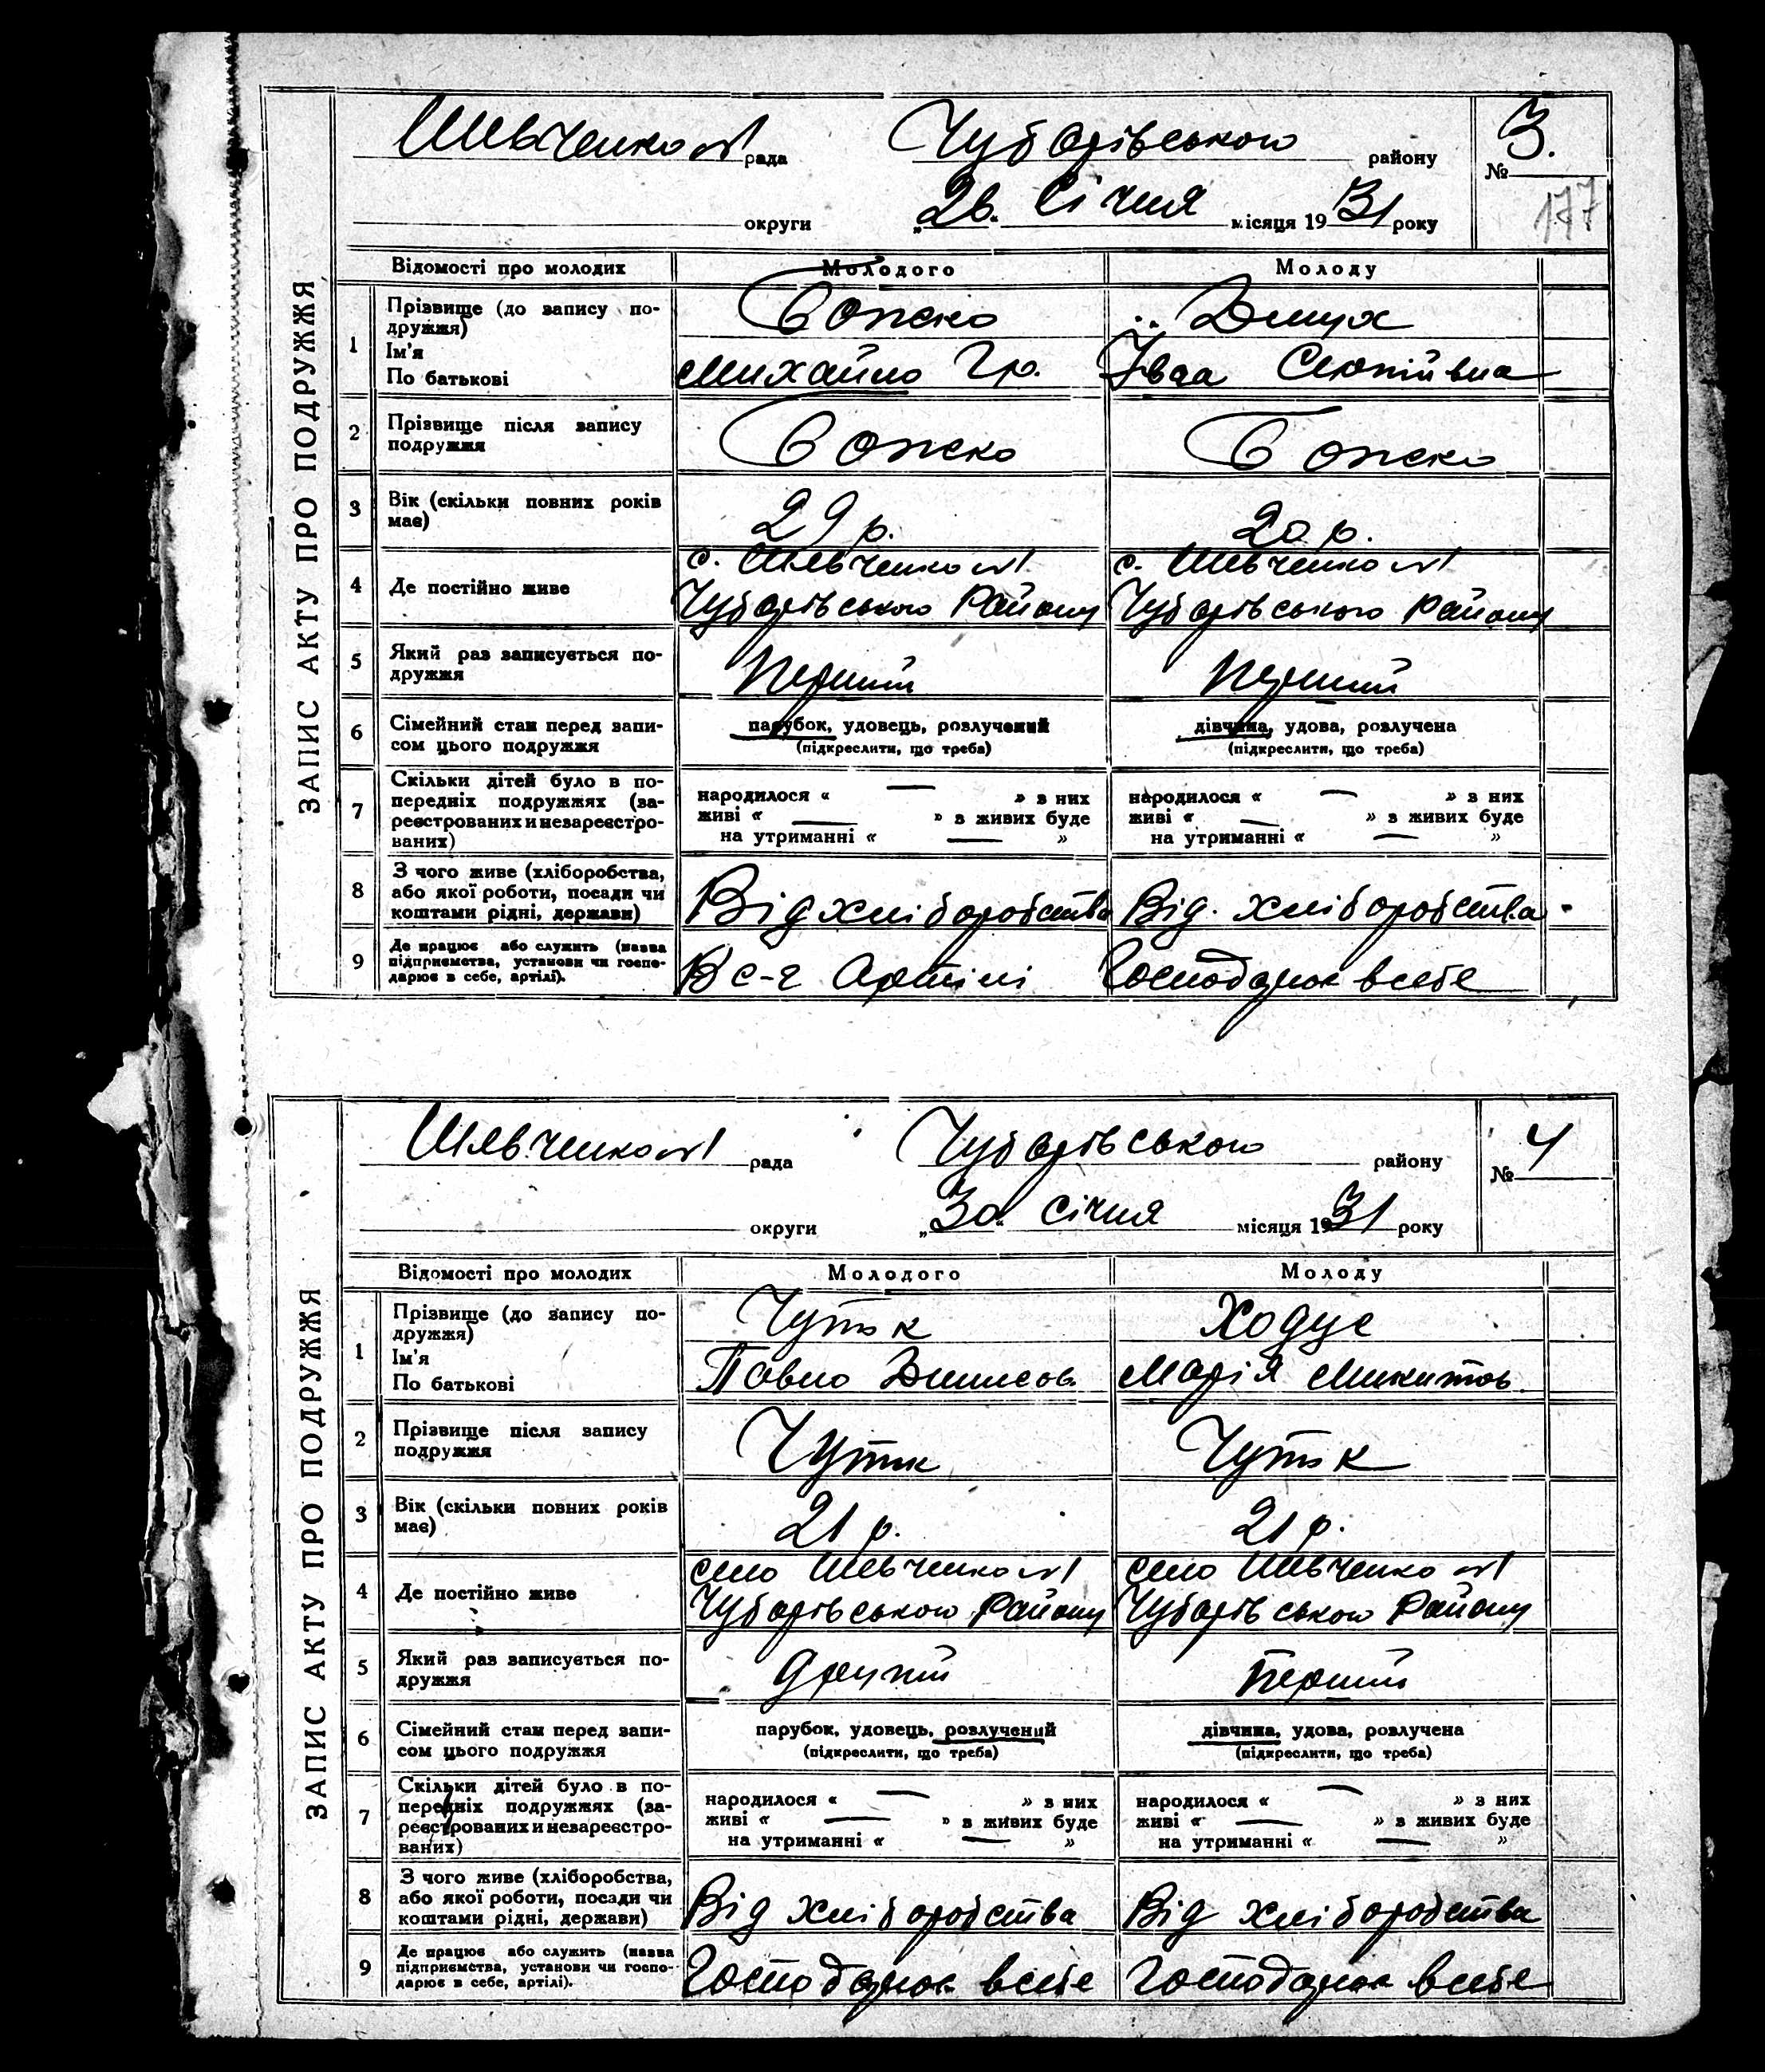 ЗАПИС АКТУ ПРО ПОДРУЖЖЯ
Шевченко №1 рада Чубарівського району № 3.
округи „26" Січня місяця 1931 року 177
Відомості про молодих Молодого Молоду
1 Прізвище (до запису подружжя) Божко
Ім'я По батькові Михайло Гр.
2 Прізвище після запису подружжя Божко Божко
3 Вік (скільки повних років має) 29 р. 20 р.
4 Де постійно живе с. Шевченко №1 с. Шевченко №1
Чубарівського Району Чубарівського Району
5 Який раз записується подружжя Перший Перший
6 Сімейний стан перед записом цього подружжя парубок, удовець, розлучений дівчина, удова, розлучена
(підкреслити, що треба) (підкреслити, що треба)
7 Скільки дітей було в попередніх подружжях (зареєстрованих и незареєстрованих)
народилося « — » з них народилося « — » з них
живі « — » з живих буде живі « — » з живих буде
на утриманні « — » на утриманні « — »
8 З чого живе (хліборобства, або якої роботи, посади чи коштами рідні, держави) Від хліборобства Від. хліборобства
9 Де працює або служить (назва підприємства, установи чи господарює в себе, артілі). В с-г Артілі Господарює всебе
ЗАПИС АКТУ ПРО ПОДРУЖЖЯ
Шевченко №1 рада Чубарівського району № 4
округи „30" січня місяця 1931 року
Відомості про молодих Молодого Молоду
1 Прізвище (до запису подружжя) Ходус
Ім'я По батькові Павло Денисов. Марія Микитов.
2 Прізвище після запису подружжя
3 Вік (скільки повних років має) 21 р. 21 р.
4 Де постійно живе село Шевченко №1 село Шевченко №1
Чубарівського Району Чубарівського Району
5 Який раз записується подружжя другий Перший
6 Сімейний стан перед записом цього подружжя парубок, удовець, розлучений дівчина, удова, розлучена
(підкреслити, що треба) (підкреслити, що треба)
7 Скільки дітей було в попередніх подружжях (зареєстрованих и незареєстрованих)
народилося « — » з них народилося « — » з них
живі « — » з живих буде живі « — » з живих буде
на утриманні « — » на утриманні « — »
8 З чого живе (хліборобства, або якої роботи, посади чи коштами рідні, держави) Від хліборобства Від хліборобства
9 Де працює або служить (назва підприємства, установи чи господарює в себе, артілі). Господарює всебе Господарює всебе